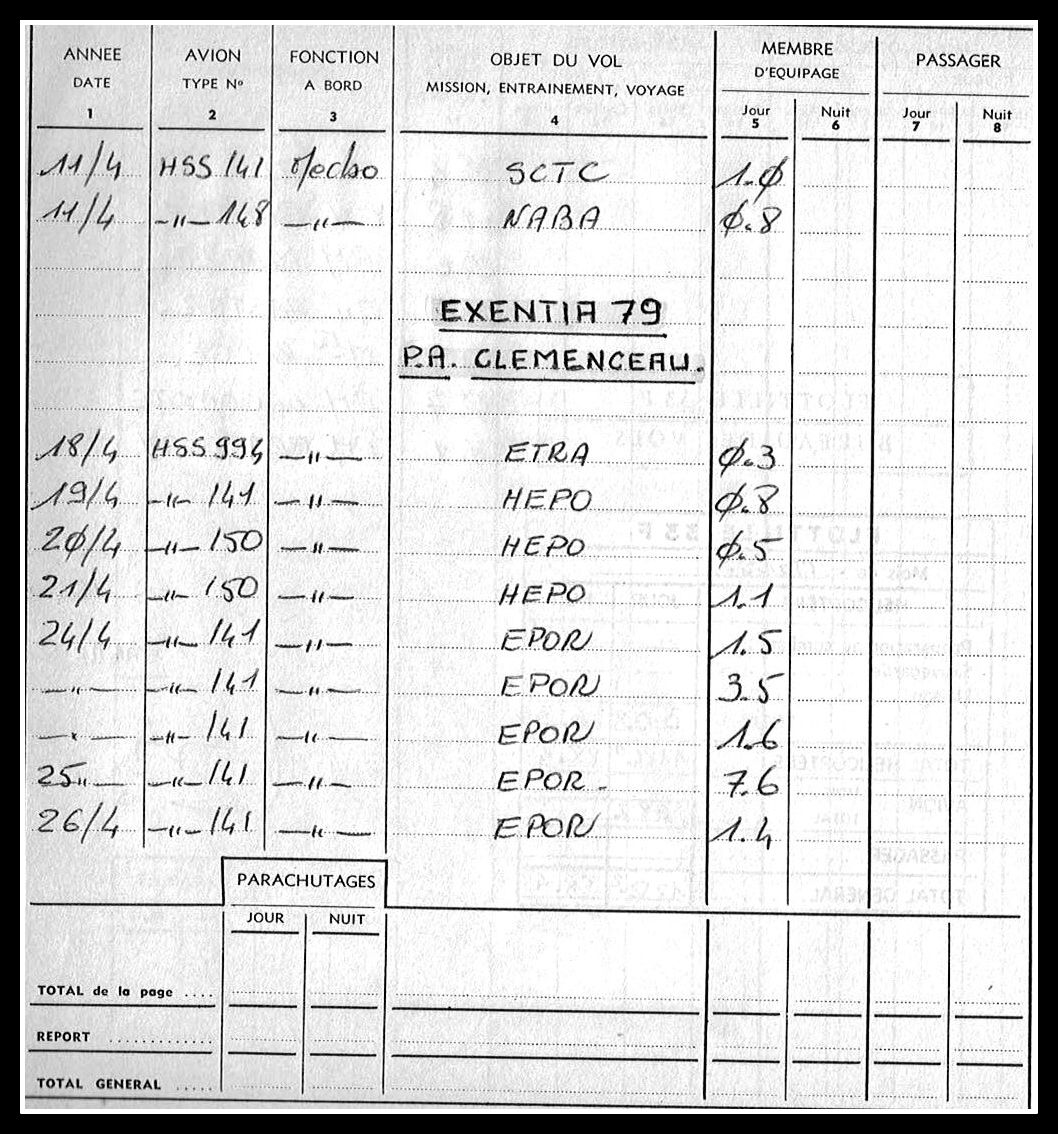 ANNEE AVION FONCTION OBJET DU VOL MEMBRE D'EQUIPAGE PASSAGER
DATE TYPE Nº A BORD MISSION, ENTRAINEMENT, VOYAGE Jour Nuit Jour Nuit
1 2 3 4 5 6 7 8
11/4 HSS 141 Mecbo SCTC 1.ø
11/4 —"— 148 —"— NABA ø.8
EXENTIA 79
P.A. CLEMENCEAU.
18/4 HSS 994 —"— ETRA ø.3
19/4 —"— 141 —"— HEPO ø.8
2ø/4 —"— 150 —"— HEPO ø.5
21/4 —"— 150 —"— HEPO 1.1
24/4 —"— 141 —"— EPOR 1.5
—"— —"— 141 —"— EPOR 3.5
—"— —"— 141 —"— EPOR 1.6
25 " —"— 141 —"— EPOR. 7.6
26/4 —"— 141 —"— EPOR 1.4
PARACHUTAGES
JOUR NUIT
TOTAL de la page ....
REPORT ............
TOTAL GENERAL .....